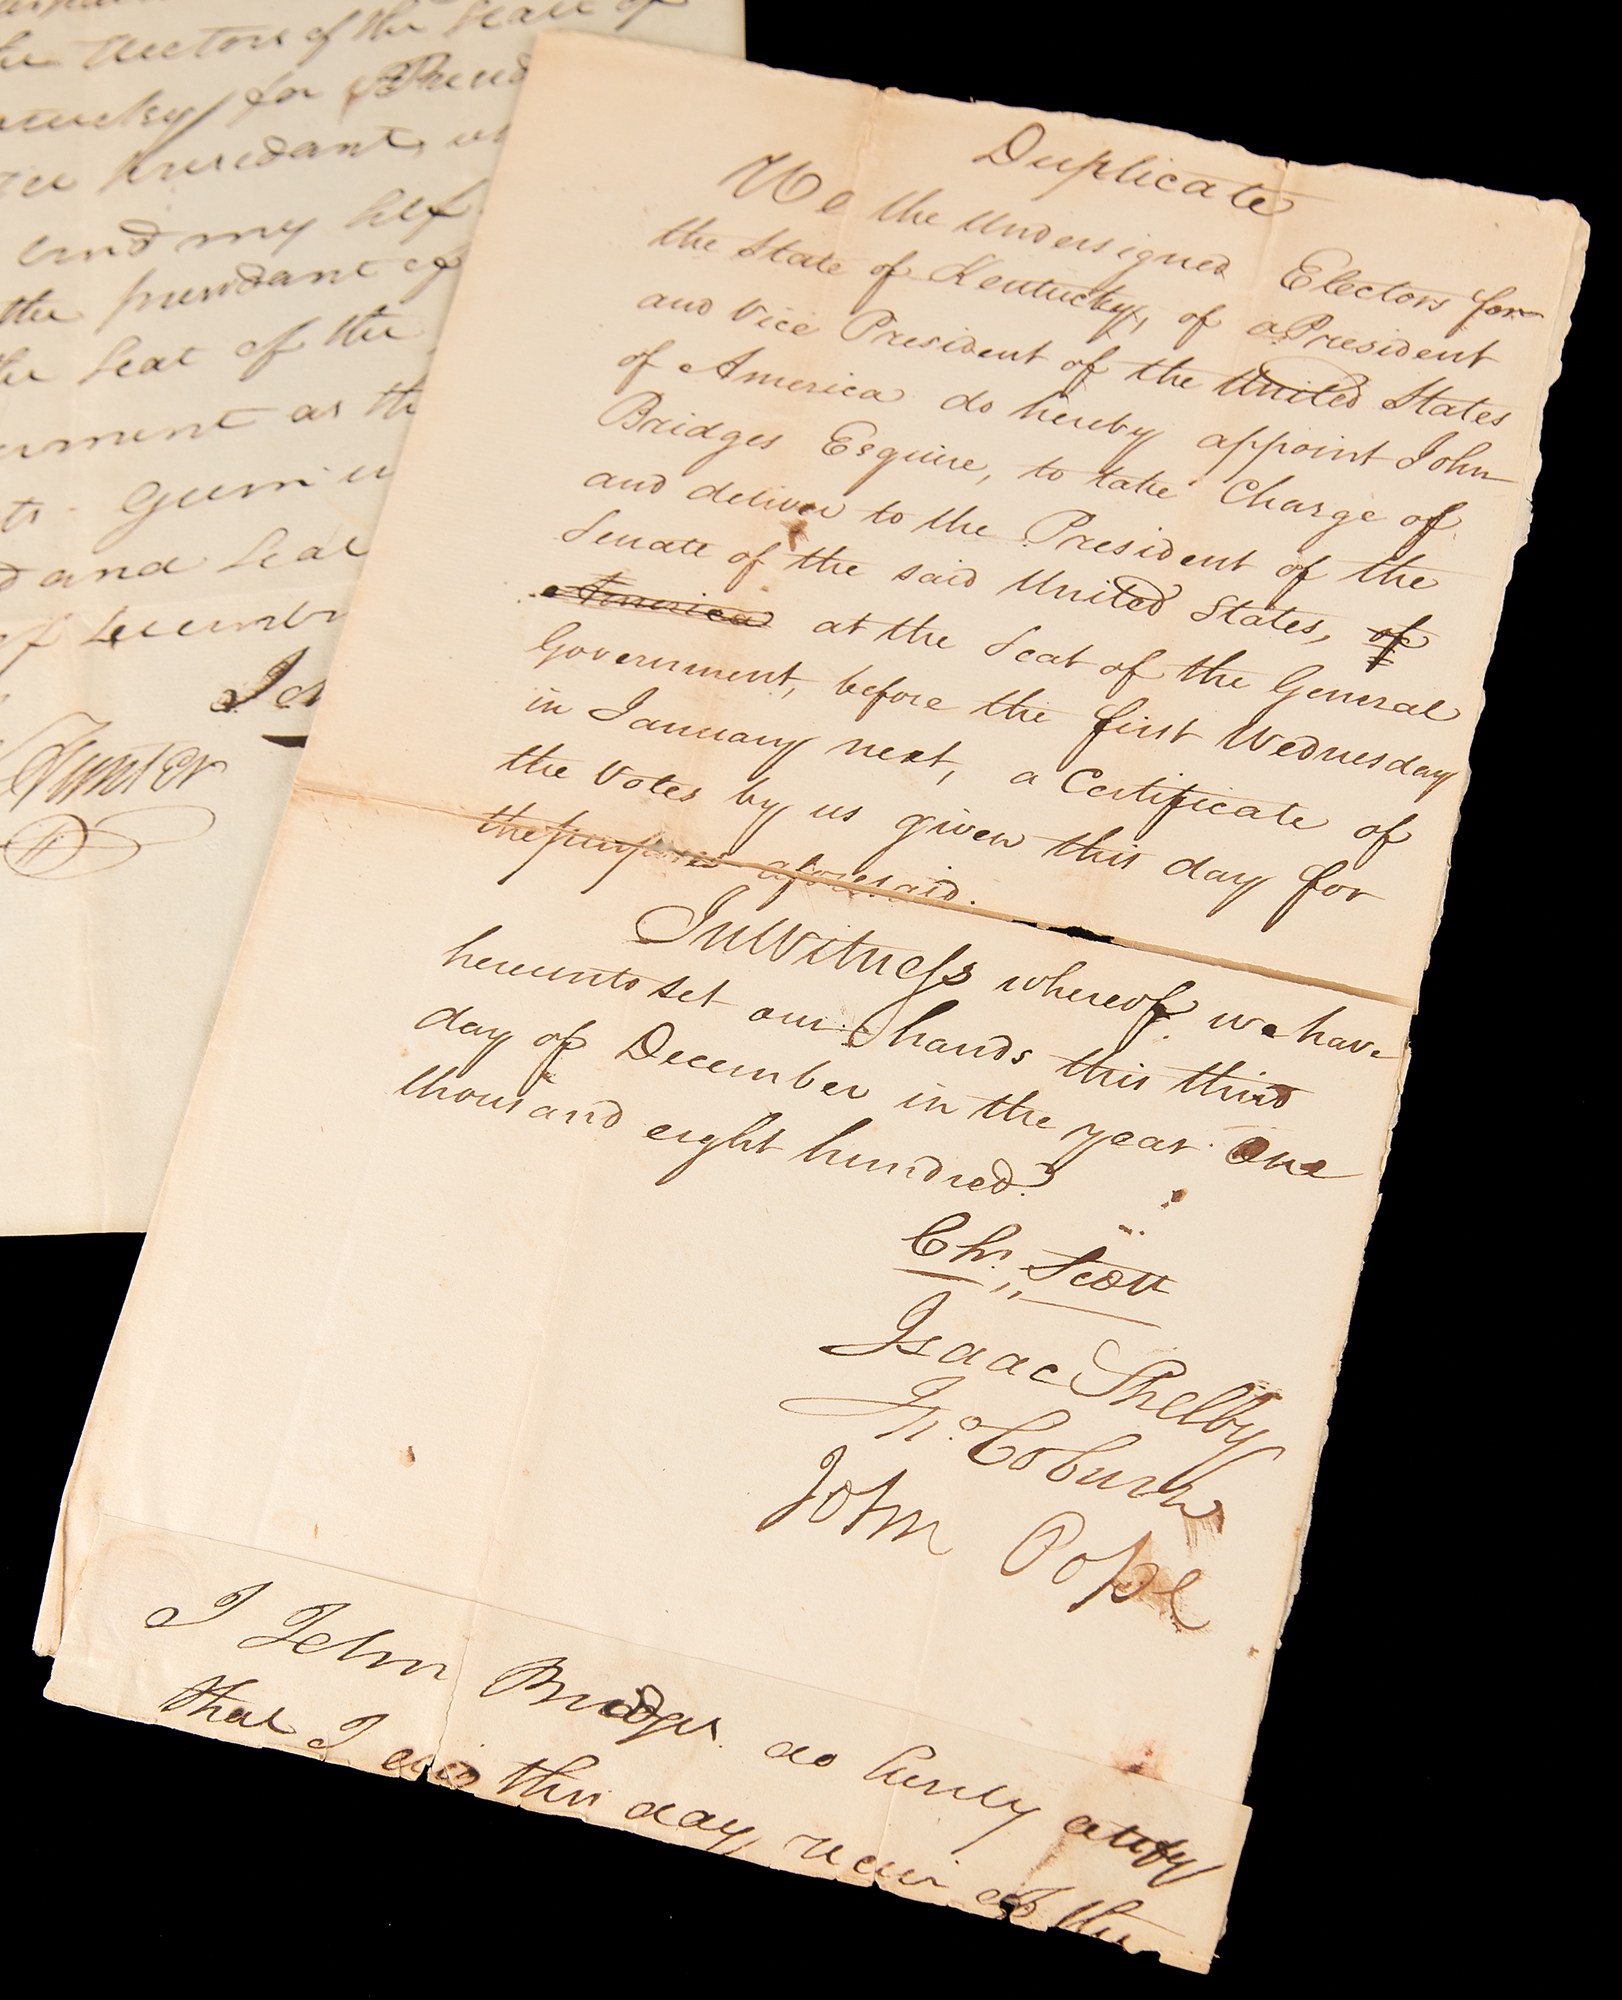 the Electors of the State of
for
and my self
the president of
the Seat of the
as the
and Seal
of December
Hunter
Duplicate
We the Undersigned Electors for
the State of Kentucky, of a President
and Vice President of the United States
of America do hereby appoint John
Bridges Esquire, to take Charge of
and deliver to the President of the
Senate of the said United States, of
America at the Seat of the General
Government, before the first Wednesday
in January next, a Certificate of
the Votes by us given this day for
the purposes aforesaid.
In Witness whereof we have
hereunto set our hands this third
day of December in the year One
thousand eight hundred.
Chs. Scott
Isaac Shelby
Jno. Coburn
John Pope
I John Bridges do herely certify
that I did this day receiv of the